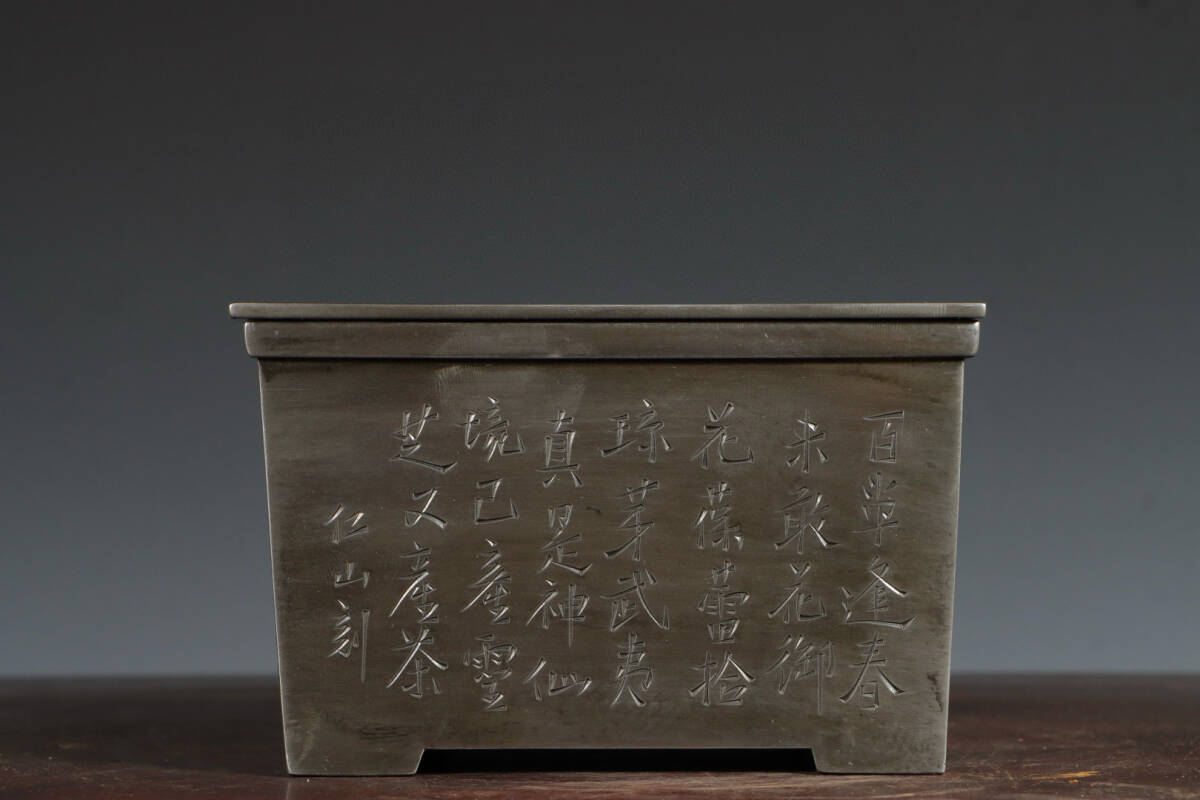 百草逢春
未敢花御
花葆蕾拾
琼芽武夷
真是神仙
境已產靈
芝又產茶
仁山刻